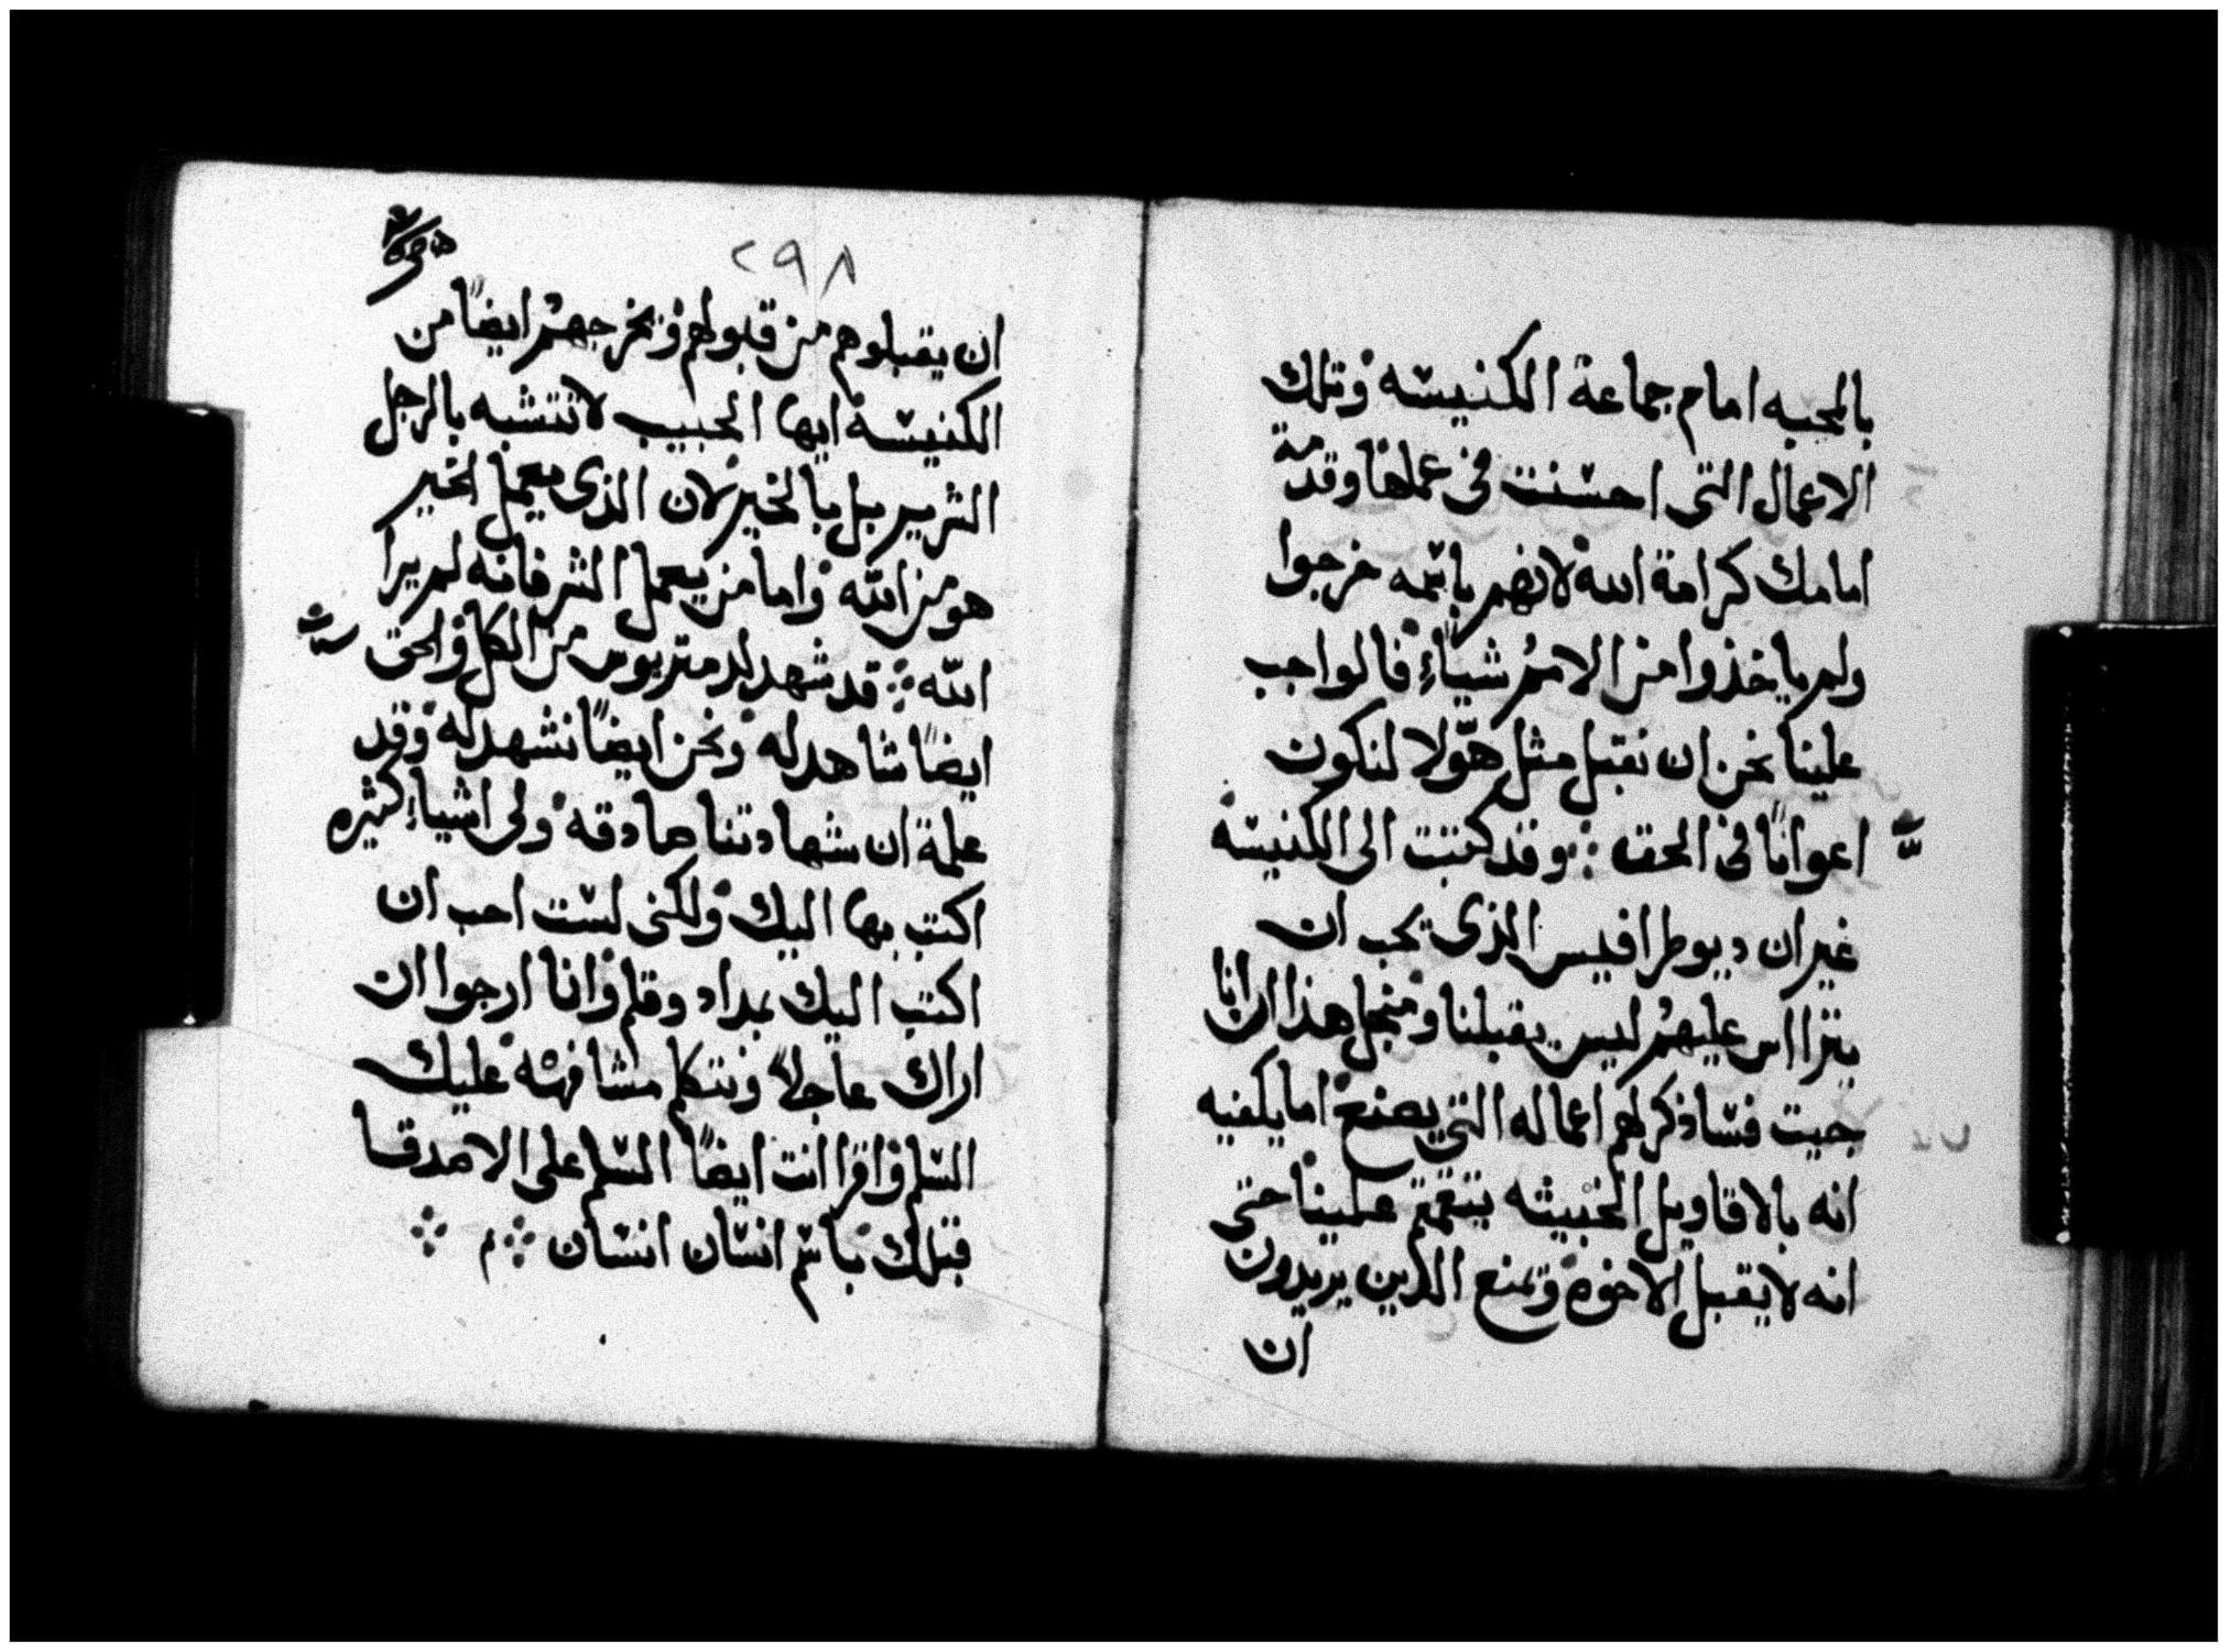 بالمحبه امام جماعة الكنيسه وتلك
الاعمال التى احسنت فى عملها وقدمة
امامك كرامة الله لانهم باسمه خرجوا
ولم ياخذوا من الامم شياءً فالواجب
علينا نحن ان نقبل مثل هولا لنكون
اعوانًا فى الحق وقد كتبت الى الكنيسه
غير ان ديوطرافيس الذى يحب ان
يتراس عليهم ليس يقبلنا ومنجل هذا ان انا
جيت فساذكر لهم اعماله التى يصنع اما يكفيه
انه بالاقاويل الخبيثه يتقمقم علينا حتى
انه لا يقبل الاخوه وتمنع الدين يريدون
ان
٢٩٨
ان يقبلوهم من قبولهم ونخرجهم ايضًا من
الكنيسه ايها الحبيب لا تتشبه بالرجل
الشرير بل بالخير لان الذى يعمل الخير
هو من الله واما من يعمل الشر فانه لم يرا
الله قد شهد لدمتريوس من الكل والحق
ايضًا شاهد له ونحن ايضًا نشهد له وقد
علمة ان شهادتنا صادقه ولى اشياء كثيره
اكتب بها اليك ولكنى لست احب ان
اكتب اليك بمداد وقلم وانا ارجوا ان
اراك عاجلاً ونتكلم مشافهه عليك
السلم واقرا انت ايضًا السلم على الاصدقا
قبلك باسم انسان انسان م